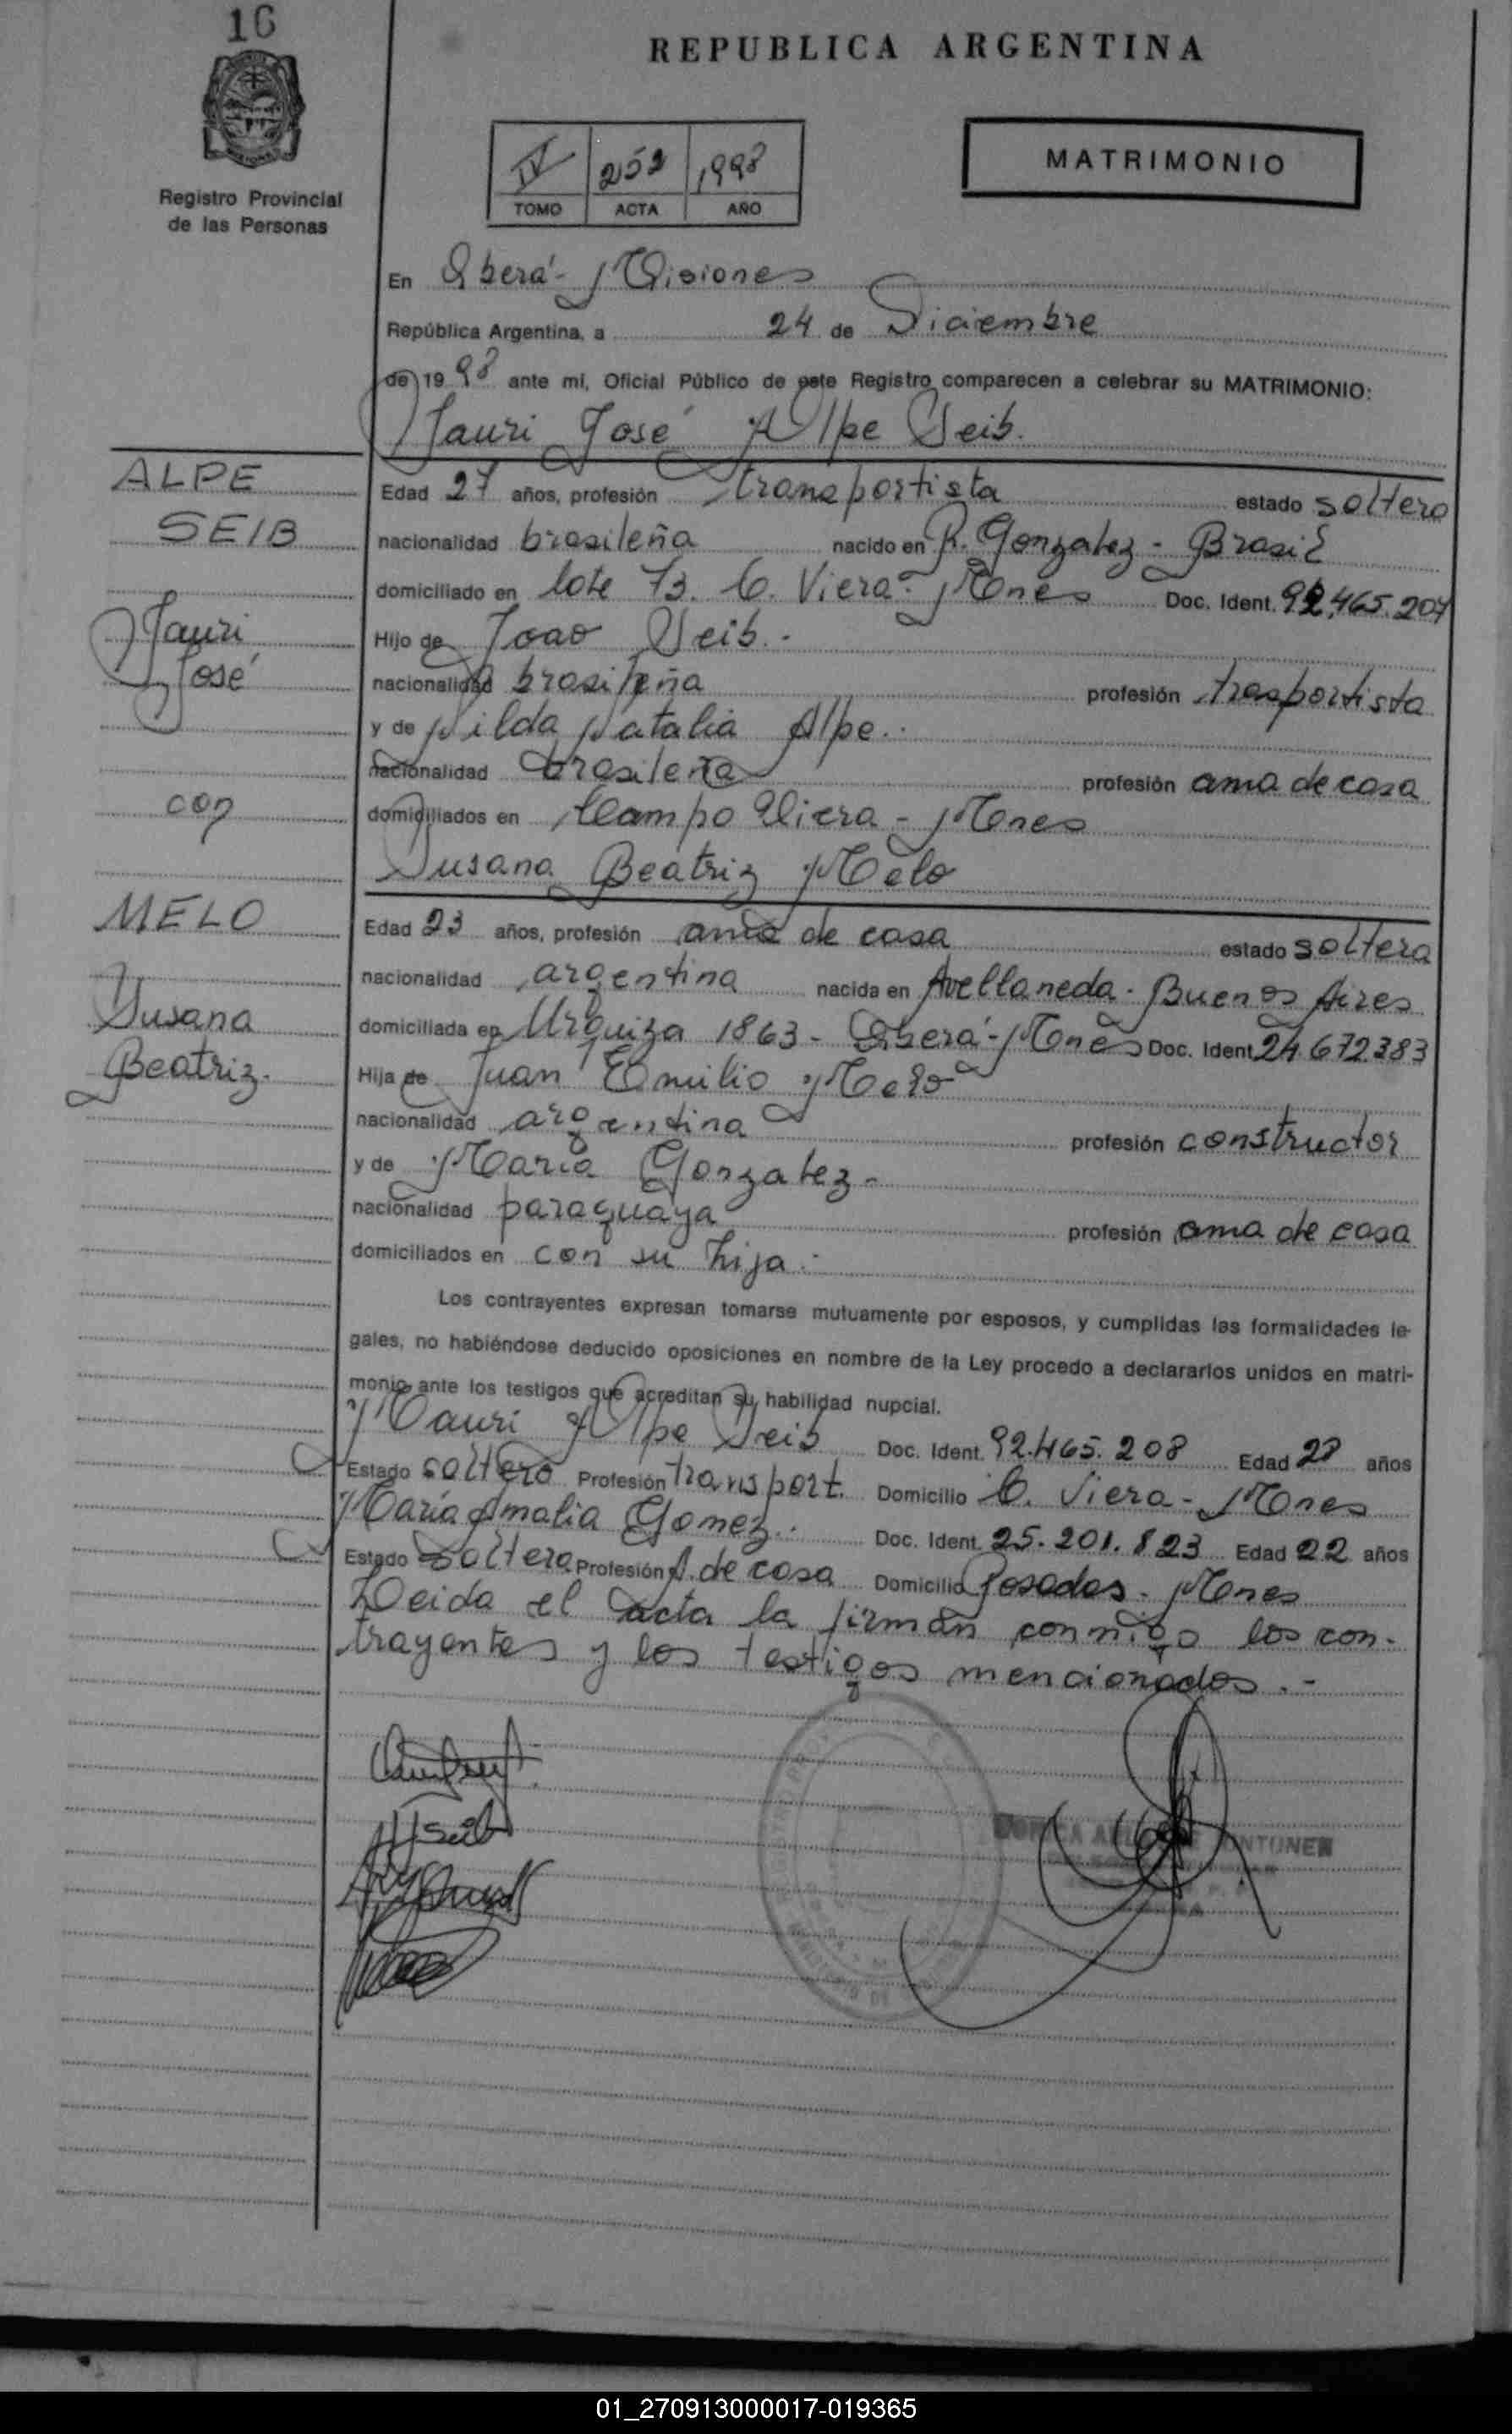 16
REPUBLICA ARGENTINA
Registro Provincial
de las Personas
IV 252 1998
TOMO ACTA AÑO
MATRIMONIO
En Oberá - Misiones
República Argentina, a 24 de Diciembre
de 19 98 ante mí, Oficial Público de este Registro comparecen a celebrar su MATRIMONIO:
José Alpe Seib.
ALPE
SEIB
José
con
MELO
Susana
Beatriz.
Edad 27 años, profesión transportista estado soltero
nacionalidad brasileña nacido en R. Gonzalez - Brasil
domiciliado en lote 73. C. Viera - Mnes Doc. Ident. 92.465.207
Hijo de Joao Seib.-
nacionalidad brasileña profesión trasportista
y de Nilda Natalia Alpe.-
nacionalidad brasileña profesión ama de casa
domiciliados en Campo Viera - Mnes
Susana Beatriz Melo
Edad 23 años, profesión ama de casa estado soltera
nacionalidad argentina nacida en Avellaneda - Buenos Aires
domiciliada en Urquiza 1863 - Oberá - Mnes Doc. Ident. 24.672.383
Hija de Juan Emilio Melo
nacionalidad argentina profesión constructor
y de María Gonzalez -
nacionalidad paraguaya profesión ama de casa
domiciliados en con su hija.-
Los contrayentes expresan tomarse mutuamente por esposos, y cumplidas las formalidades le-
gales, no habiéndose deducido oposiciones en nombre de la Ley procedo a declararlos unidos en matri-
monio ante los testigos que acreditan su habilidad nupcial.
Mauri Alpe Seib Doc. Ident. 92.465.208 Edad 28 años
Estado soltero Profesión transport. Domicilio C. Viera - Mnes
María Amalia Gomez.- Doc. Ident. 25.201.823 Edad 22 años
Estado soltera Profesión A. de casa Domicilio Posadas - Mnes
Leida el acta la firman conmigo los con-
trayentes y los testigos mencionados.-
01_270913000017-019365